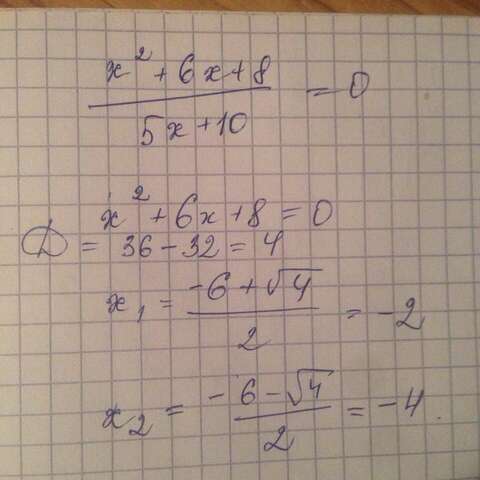 x² + 6x + 8
———— = 0
5x + 10
x² + 6x + 8 = 0
D = 36 - 32 = 4
x₁ = (-6 + √4) / 2 = -2
x₂ = (-6 - √4) / 2 = -4.